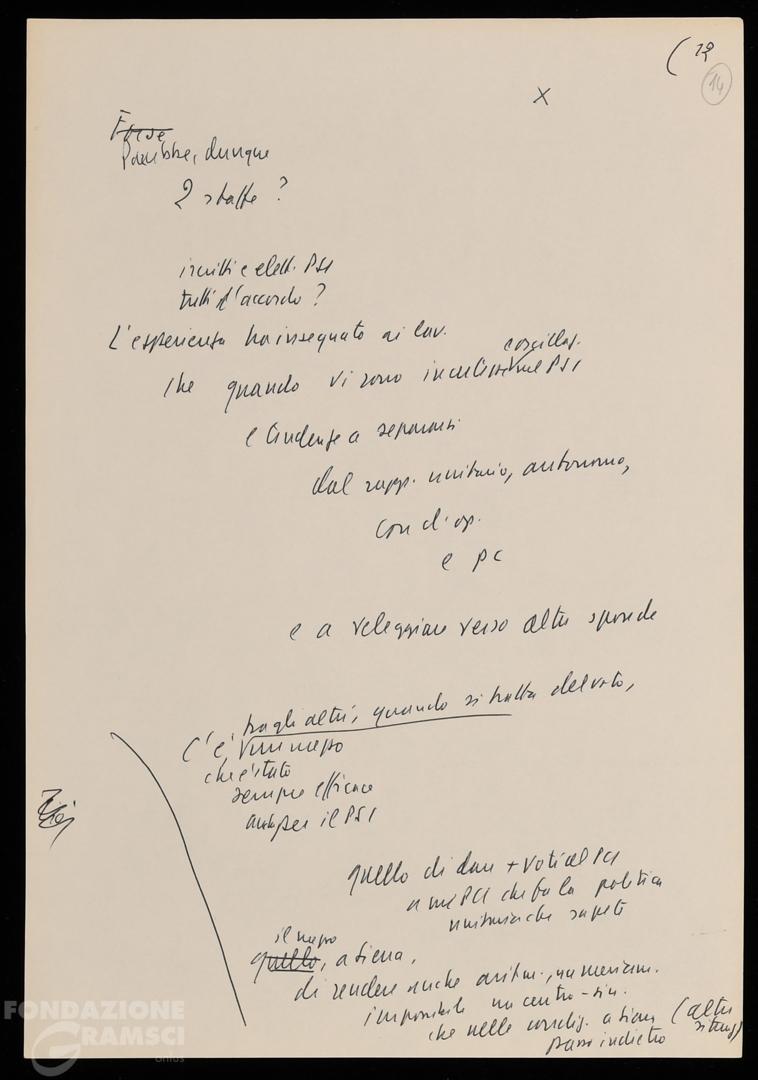 ( 12
14
X
Forse
Potrebbe, dunque
2 staffe ?
iscritti e elett. PSI
tutti d'accordo ?
L'esperienza ha insegnato ai lav.
oscillaz.
che quando vi sono incertezze nel PSI
e tendenze a separarsi
dal rapp. unitario, autonomo,
con cl. op.
e PC
e a veleggiare verso altre sponde
tra gli altri, quando si tratta del voto,
C'è un mezzo
che è stato
sempre efficace
anche per il PSI
quello di dare + voti al PCI
a un PCI che fa la politica
unitaria che sapete
il mezzo
quello, a Siena,
di rendere anche aritm., numericam.
impossibile un centro-sin.
che nelle condiz. a Siena (altre
passo indietro
FONDAZIONE
GRAMSCI
onlus